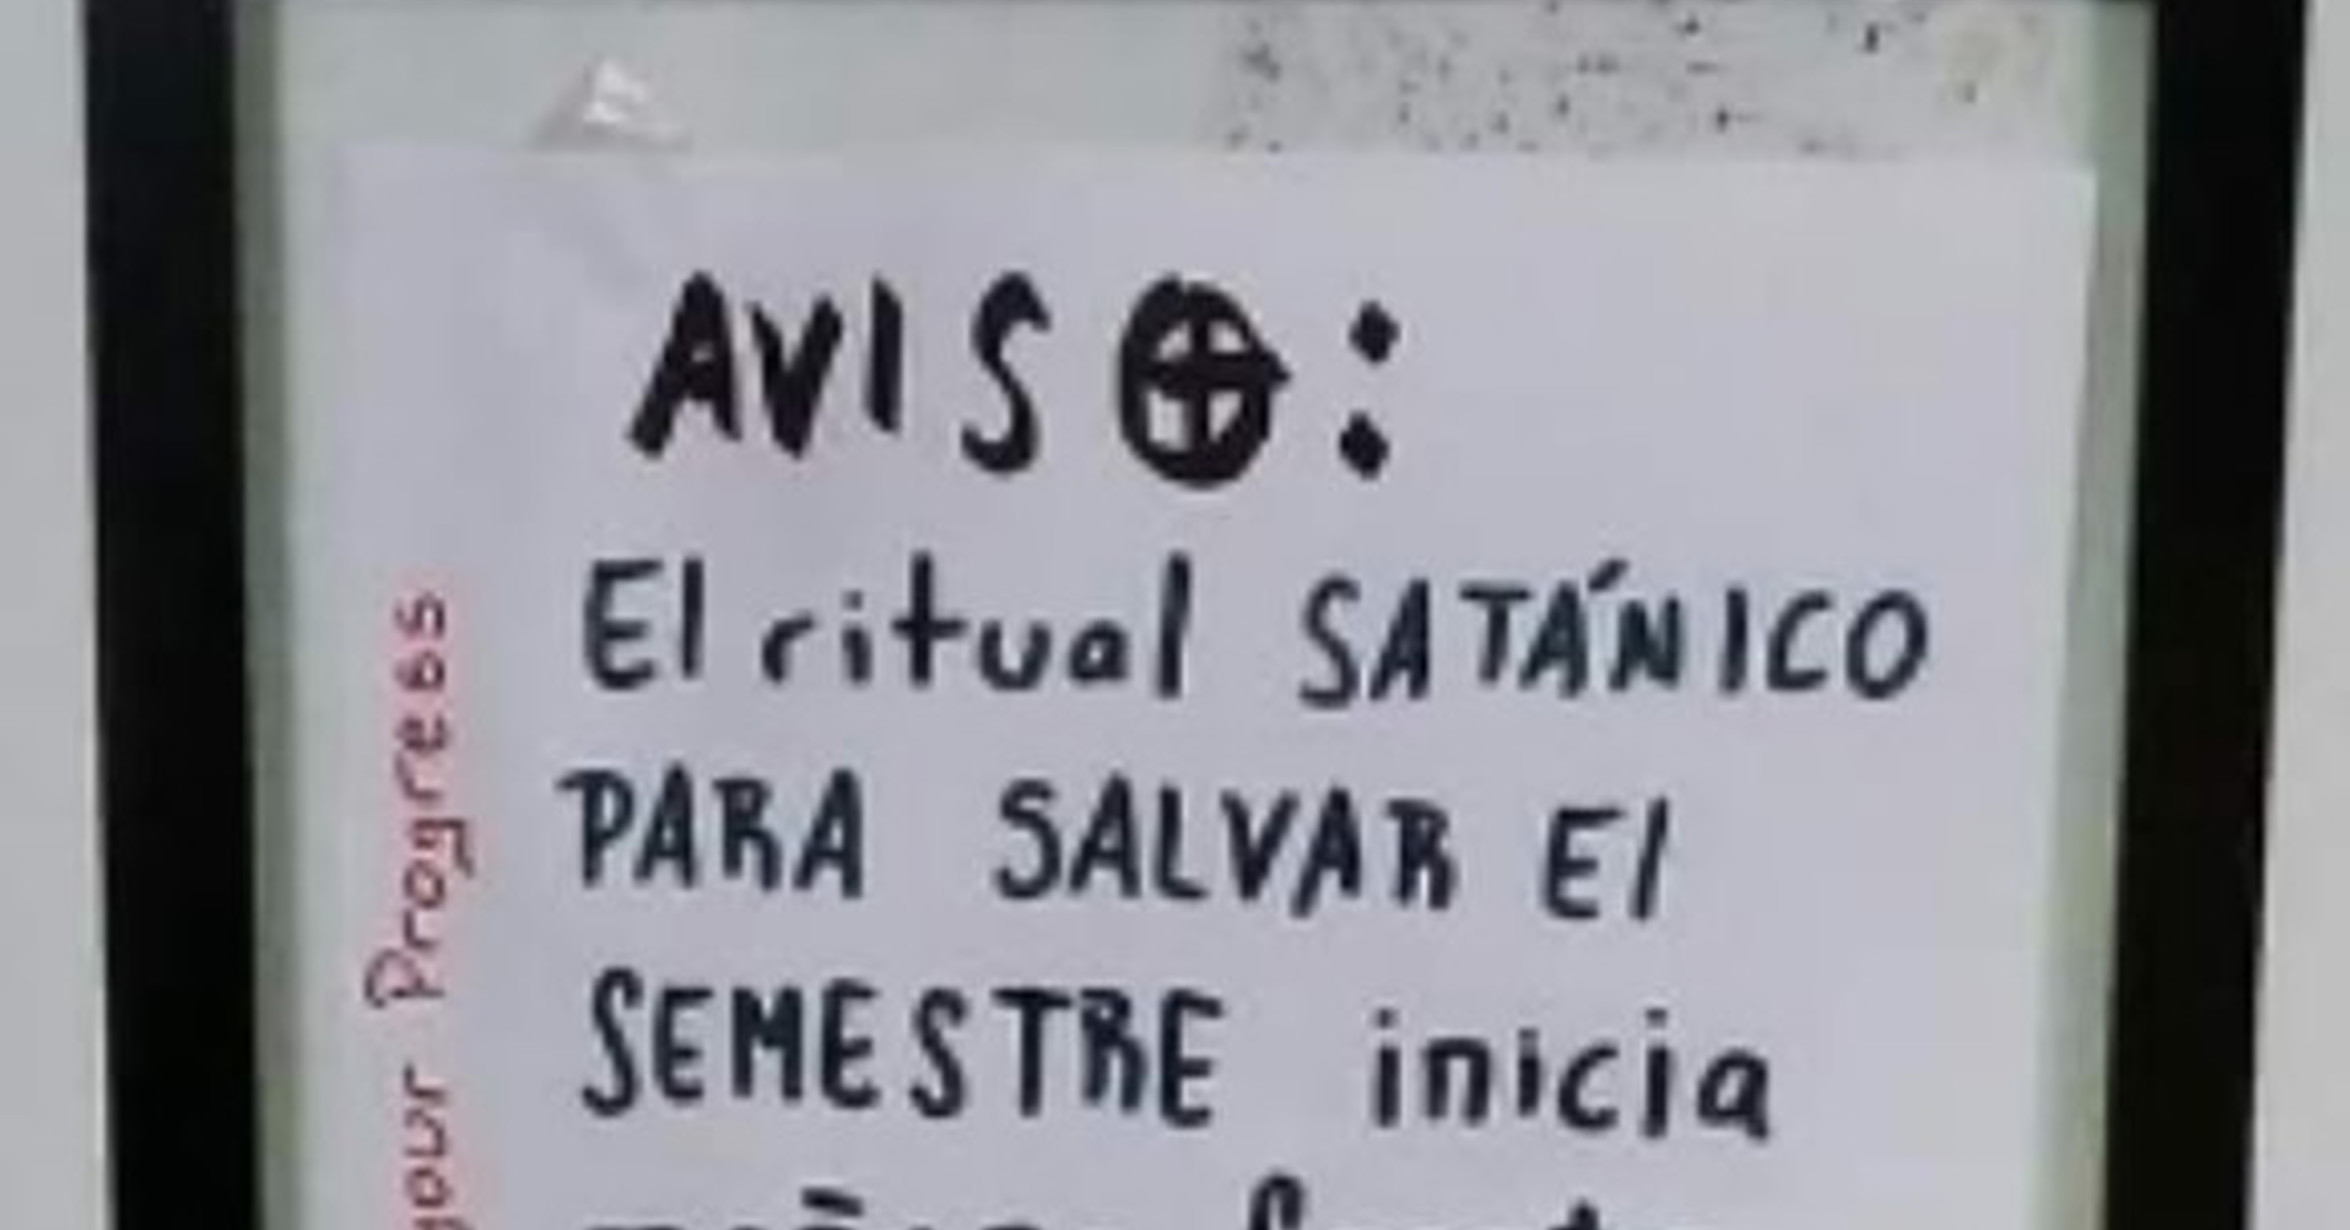 AVISO:
El ritual SATÁNICO
PARA SALVAR El
SEMESTRE inicia
your Progress